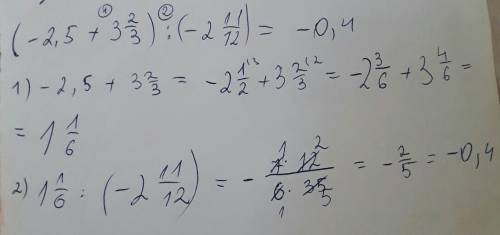 (-2,5 + 3 2/3) : (-2 11/12) = -0,4
1) -2,5 + 3 2/3 = -2 1/2 + 3 2/3 = -2 3/6 + 3 4/6 =
= 1 1/6
2) 1 1/6 : (-2 11/12) = - 7·12/6·35 = - 2/5 = -0,4